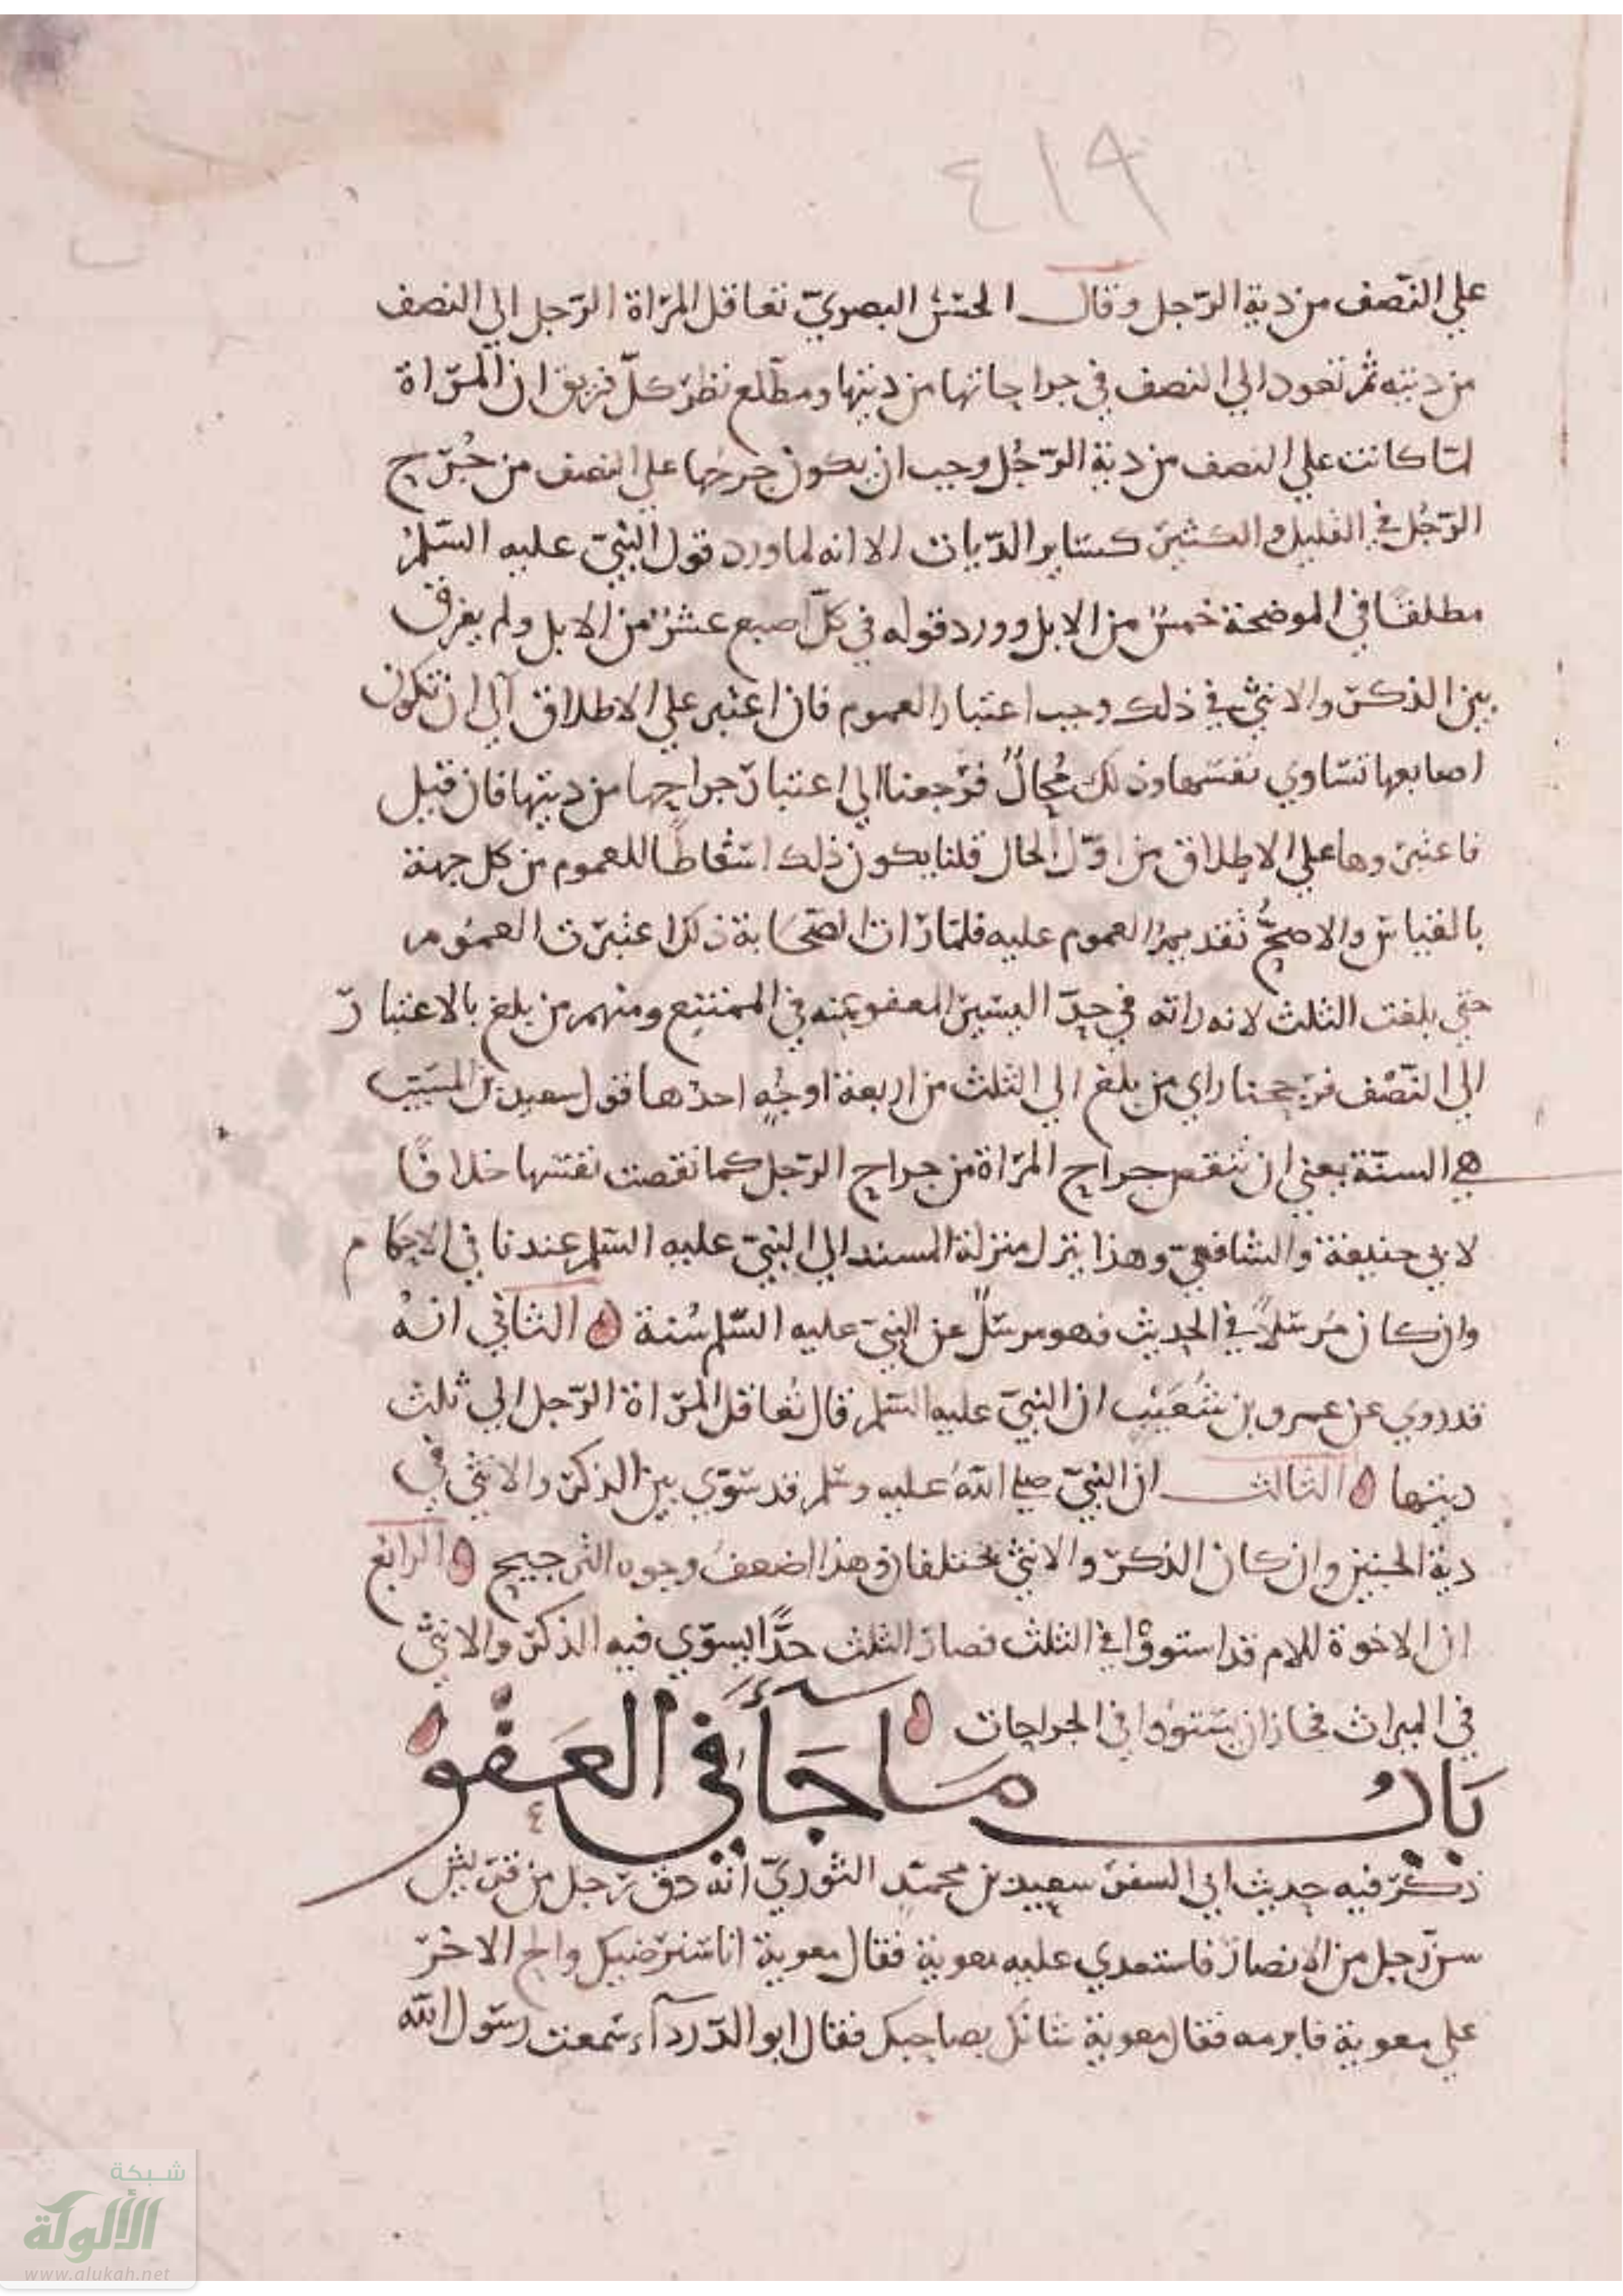 ٤١٩
علي النّصف من دية الرّجل وقال الحسن البصريّ تعاقل المرّاة الرّجل الي النصف
من ديته ثم تعود الي النصف في جراحاتها من ديتها ومطّلع نظر كلّ فريق ان المرّاة
لمّا كانت علي النصف من دية الرّجُل وجب ان يكون جرحُها علي النصف من جُرّح
الرّجُل في القليل والكثير كسّاير الدّيات الا انه لما ورد قول النبيّ عليه السّلم
مطلقًا في الموضحة خمسٌ من الابل وورد قوله في كلّ اصبع عشرٌ من الابل ولم يفرق
بين الذكر والانثي في ذلك وجب اعتبار العموم فان اعتبر علي الاطلاق آلي ان تكون
اصابعها تسّاوي نفسّها وذلك مُحالٌ فرّجعنا الي اعتبار جراحها من ديتها فان قيل
فاعتبروها علي الاطلاق من اوّل الحال قلنا يكون ذلك اسّقاطًا للعموم من كل جهة
بالقياس والاصحُّ تقديمُ العموم عليه فلمّا رّات الصّحابة ذلك اعتبرّت العموم
حتي بلغت الثلث لانه راته في حدّ اليسير المعفو عنه في الممتنع ومنهم من بلغ بالاعتبار
الي النّصْف فرجحنا راي من بلغ الي الثلث من اربعة اوجُهٍ احدُها قول سعيد بن المسَيّب
هي السنّة يعني ان تنقص جراح المرّاة من جراح الرّجل كما نقصت نفسّها خلافًا
لابي حنيفة والشافعيّ وهذا ينزل منزلة المسند الي النبيّ عليه السّلم عندنا في الاحكام
وان كان مُرسّلاً في الحديث فهو مرسّلٌ عن النبيّ عليه السّلم سُنة ه الثاني انهُ
قد روي عن عمرو بن شُعَيْب ان النبيّ عليه السّلم قال تُعاقل المرّاة الرّجل الي ثلث
ديتها ه الثالث ان النبيّ صلي اللّهُ عليه وسّلم قد سّوّي بين الذكر والانثي في
دية الجنين وان كان الذكرّ والانثي يختلفان وهذا اضعفُ وجوه الترجيح ه الرابع
ان الاخوة للام قد استووْا في الثلث فصارّ الثلث حدًّا يسوّي فيه الذكرّ والانثي
في الميراث فجاز ان يسّتوُوا في الجراحات ه
بَابُ مَا جَآءَ في العَفْو
ذكرّ فيه حديث ابي السفرّ سعيد بن محمّد الثوريّ انّه دق رّجل من قرّيش
سن رّجل من الانصارّ فاستعدي عليه معوية فقال معوية انا سّنرّضيك والح الاخرّ
علي معوية فابرمه فقال معوية شانك بصاحبك فقال ابو الدّردآء سّمعت رسّول اللّه
شبكة
الألوكة
www.alukah.net